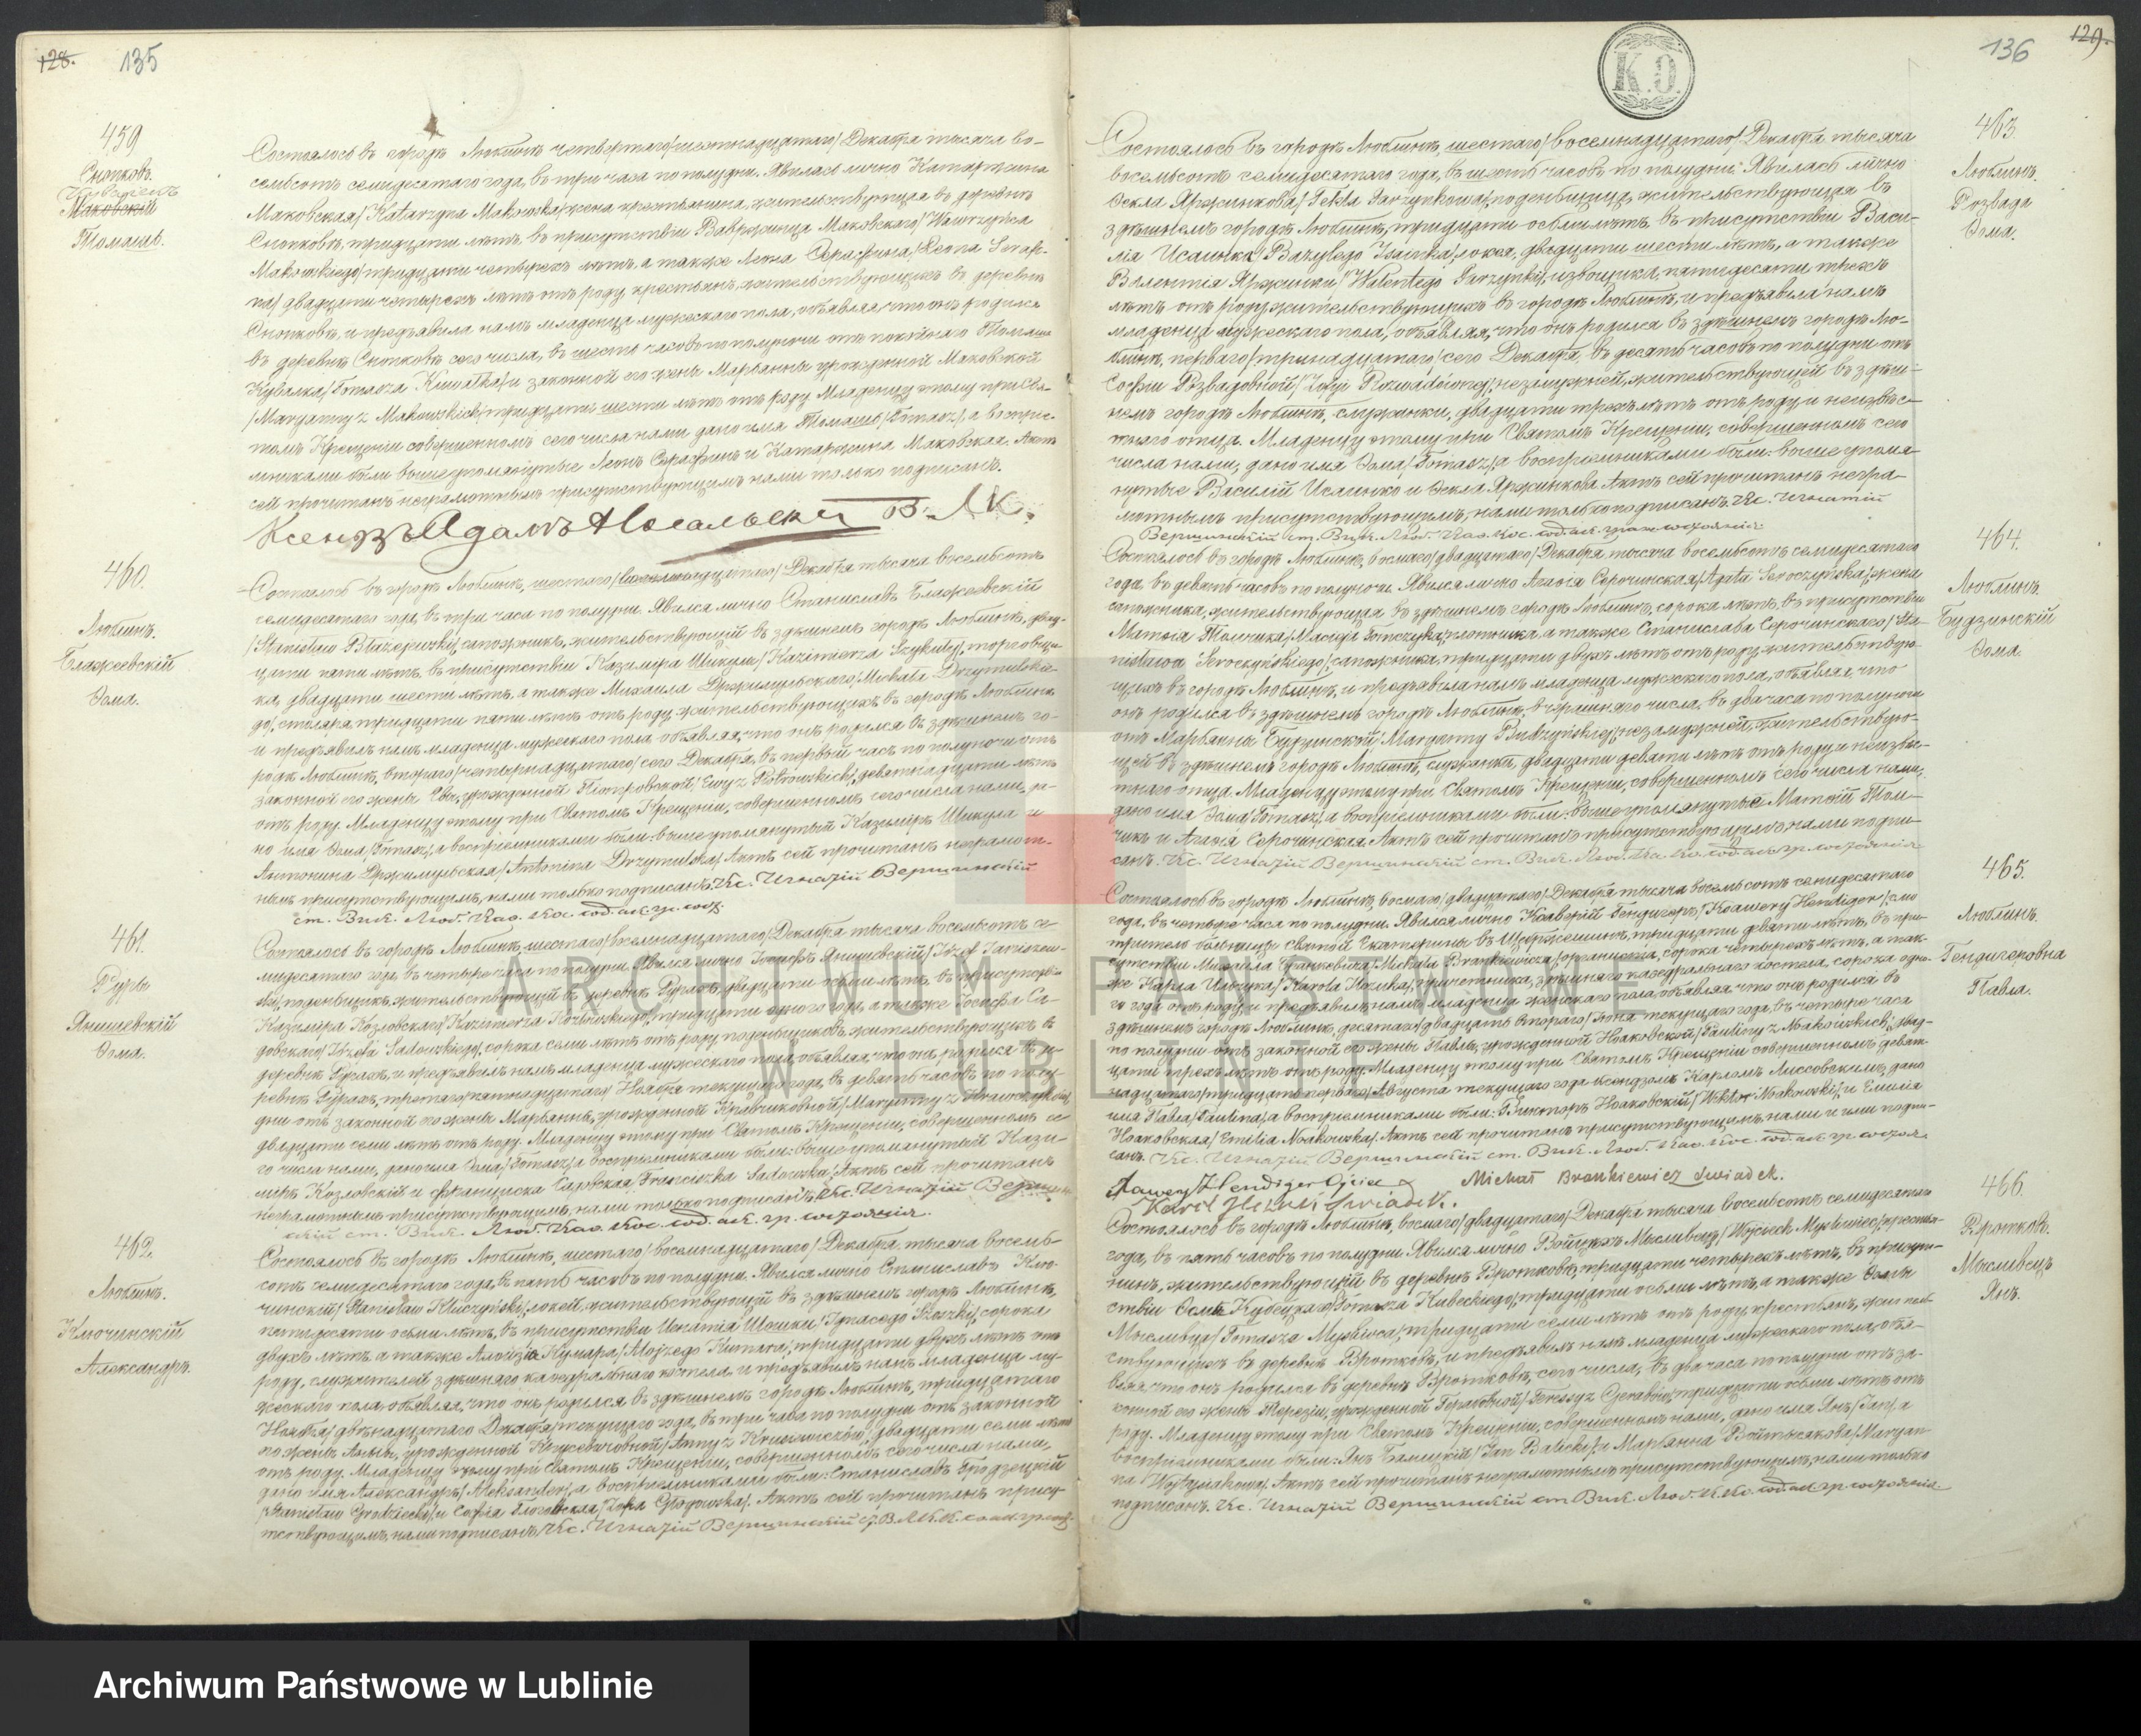 128. 135
459
Снопковъ.
Куватекъ
Маковскій
Томашъ.
Состоялось въ городѣ Люблинѣ четвертаго/шестнадцатаго/ Декабря тысяча во-
семьсотъ семидесятаго года, въ три часа по полудни. Явилась лично Катаржина
Маковская /Katarzyna Makowska/ жена крестьянина, жительствующая въ деревнѣ
Снопковѣ, тридцати лѣтъ, въ присутствіи Вавржинца Маковскаго /Wawrzyńca
Makowskiego/ тридцати четырехъ лѣтъ, а также Леона Серафина /Leona Serafi-
na/ двадцати четырехъ лѣтъ отъ роду, крестьянъ, жительствующихъ въ деревнѣ
Снопковѣ, и предъявила намъ младенца мужескаго пола, объявляя что онъ родился
въ деревнѣ Снопковѣ сего числа, въ шесть часовъ по полуночи отъ покойнаго Томаша
Кувалка /Tomasza Kuwałka/ и законной его жены Марьянны урожденной Маковской
/Maryanny z Makowskich/ тридцати шести лѣтъ отъ роду. Младенцу этому при Свя-
томъ Крещеніи совершенномъ сего числа нами дано имя Томашъ /Tomasz/, а воспріе-
мниками были вышеупомянутые Леонъ Серафинъ и Катаржина Маковская. Актъ
сей прочитанъ неграмотнымъ присутствующимъ нами только подписанъ.
Ксендзъ Адамъ
460.
Люблинъ.
Блажеевскій
Ѳома.
Состоялось въ городѣ Люблинѣ, шестаго/восемнадцатаго/ Декабря тысяча восемьсотъ
семидесятаго года, въ три часа по полудни. Явился лично Станиславъ Блажеевскій
/Stanisław Błażejewski/, сапожникъ, жительствующій въ здѣшнемъ городѣ Люблинѣ, двад-
цати пяти лѣтъ, въ присутствіи Казиміра Шикулы /Kazimierza Szykuły/, торговщи-
ка, двадцати шести лѣтъ, а также Михаила Држимульскаго /Michała Drzymulskie-
go/, столяра, тридцати пяти лѣтъ отъ роду, жительствующихъ въ городѣ Люблинѣ
и предъявилъ намъ младенца мужескаго пола, объявляя, что онъ родился въ здѣшнемъ го-
родѣ Люблинѣ, втораго/четырнадцатаго/ сего Декабря, въ первый часъ по полуночи отъ
законной его жены Евы, урожденной Піотровской /Ewy z Piotrowskich/, девятнадцати лѣтъ
отъ роду. Младенцу этому при Святомъ Крещеніи, совершенномъ сего числа нами, да-
но имя Ѳома /Tomasz/, а воспріемниками были: вышеупомянутый Казиміръ Шикула и
Антонина Држимульская /Antonina Drzymulska/. Актъ сей прочитанъ неграмот-
нымъ присутствующимъ, нами только подписанъ. Кс. Игнатій Вершинскій
ст. Вик. Люб. Каѳ. Кос. сод. ак. гр. сост.
461.
Руры
Янишевскій
Ѳома.
Состоялось въ городѣ Люблинѣ, шестаго/восемнадцатаго/ Декабря тысяча восемьсотъ се-
мидесятаго года, въ четыре часа по полудни. Явился лично Іосифъ Янишевскій /Józef Janiszew-
ski/, поденьщикъ, жительствующій въ деревнѣ Рурахъ, двадцати лѣтъ, въ присутствіи
Казиміра Козловскаго /Kazimierza Kozłowskiego/, тридцати одного года, а также Іосифа Са-
довскаго /Józefa Sadowskiego/, сорока семи лѣтъ отъ роду, поденьщиковъ, жительствующихъ въ
деревнѣ Рурахъ, и предъявилъ намъ младенца мужескаго пола, объявляя, что онъ родился въ де-
ревнѣ Рурахъ, третьяго/пятнадцатаго/ Ноября текущаго года, въ девять часовъ по полу-
дни отъ законной его жены Марьянны, урожденной Кравчиковной /Maryanny z
двадцати семи лѣтъ отъ роду. Младенцу этому при Святомъ Крещеніи, совершенномъ се-
го числа нами, дано имя Ѳома /Tomasz/, а воспріемниками были: вышеупомянутый Кази-
міръ Козловскій и Францишка Садовская /Franciszka Sadowska/. Актъ сей прочитанъ
неграмотнымъ присутствующимъ, нами только подписанъ. Кс. Игнатій Вершин-
скій ст. Вик. Люб. Каѳ. Кос. сод. ак. гр. состоянія.
462.
Люблинъ.
Ключинскій
Александръ.
Состоялось въ городѣ Люблинѣ, шестаго/восемнадцатаго/ Декабря тысяча восемь-
сотъ семидесятаго года, въ пять часовъ по полудни. Явился лично Станиславъ Клю-
чинскій /Stanisław Kluczyński/, локей, жительствующій въ здѣшнемъ городѣ Люблинѣ,
пятидесяти осьми лѣтъ, въ присутствіи Игнатія сорока
двухъ лѣтъ, а также Алоизія Кумара /Alojzego Kumara/, тридцати двухъ лѣтъ отъ
роду, служителей здѣшняго каѳедральнаго костела, и предъявилъ намъ младенца му-
жескаго пола, объявляя, что онъ родился въ здѣшнемъ городѣ Люблинѣ, тридцатаго
Ноября/двѣнадцатаго Декабря/ текущаго года, въ три часа по полудни отъ законной
его жены Анны, урожденной двадцати семи лѣтъ
отъ роду. Младенцу этому при Святомъ Крещеніи, совершенномъ сего числа нами,
дано имя Александръ /Aleksander/, а воспріемниками были: Станиславъ Гродзецкій
/Stanisław Grodziecki/ и Софія Глоговская /Zofia Głogowska/. Актъ сей прочитанъ прису-
тствующимъ, нами подписанъ. Кс. Игнатій Вершинскій
136 129.
K.O.
463.
Люблинъ.
Розвада
Ѳома.
Состоялось въ городѣ Люблинѣ, шестаго/восемнадцатаго/ Декабря тысяча
восемьсотъ семидесятаго года, въ шесть часовъ по полудни. Явилась лично
Ѳекла Яржинкова /Tekla Jarzynkowa/, поденьщица, жительствующая въ
здѣшнемъ городѣ Люблинѣ, тридцати осьми лѣтъ, въ присутствіи Васи-
лія Исаинка /Bazylego Isainka/, локея, двадцати шести лѣтъ, а также
Валентія Яржинки /Walentego Jarzynki/, извощика, пятидесяти трехъ
лѣтъ отъ роду, жительствующихъ въ городѣ Люблинѣ, и предъявила намъ
младенца мужескаго пола, объявляя, что онъ родился въ здѣшнемъ городѣ Лю-
блинѣ, перваго/тринадцатаго/ сего Декабря, въ десять часовъ по полудни отъ
Софіи Розвадовной /Zofji Rozwadówny/, незамужней, жительствующей въ здѣш-
немъ городѣ Люблинѣ, служанки, двадцати трехъ лѣтъ отъ роду и неизвѣс-
тнаго отца. Младенцу этому при Святомъ Крещеніи, совершенномъ сего
числа нами, дано имя Ѳома /Tomasz/, а воспріемниками были: вышеупомя-
нутые Василій Исаинко и Ѳекла Яржинкова. Актъ сей прочитанъ негра-
мотнымъ присутствующимъ, нами только подписанъ. Кс. Игнатій
Вершинскій ст. Вик. Люб. Каѳ. Кос. сод. ак. граж. состоянія.
464.
Люблинъ.
Будзинскій
Ѳома.
Состоялось въ городѣ Люблинѣ, восьмаго/двадцатаго/ Декабря тысяча восемьсотъ семидесятаго
года, въ девять часовъ по полуночи. Явилась лично Агаѳія Сорочинская /Agata Seroczyńska/, жена
сапожника, жительствующая въ здѣшнемъ городѣ Люблинѣ, сорока лѣтъ, въ присутствіи
Матвѣя Томчика /Macieja Tomczyka/, плотника, а также Станислава Серочинскаго /Sta-
nisława Seroczyńskiego/, сапожника, тридцати двухъ лѣтъ отъ роду, жительствую-
щихъ въ городѣ Люблинѣ, и предъявила намъ младенца мужескаго пола, объявляя, что
онъ родился въ здѣшнемъ городѣ Люблинѣ, вчерашняго числа, въ два часа по полуночи
отъ Марьянны Будзинской /Maryanny Budzyńskiej/, незамужней, жительствую-
щей въ здѣшнемъ городѣ Люблинѣ, служанки, двадцати девяти лѣтъ отъ роду и неизвѣс-
тнаго отца. Младенцу этому при Святомъ Крещеніи, совершенномъ сего числа нами,
дано имя Ѳома /Tomasz/, а воспріемниками были: вышеупомянутые Матвѣй Том-
чикъ и Агаѳія Серочинская. Актъ сей прочитанъ присутствующимъ нами подпи-
санъ. Кс. Игнатій Вершинскій ст. Вик. Люб. Ка. Ко. сод. ак. гр. состоянія
465.
Люблинъ.
Гендигеровна
Павла.
Состоялось въ городѣ Люблинѣ, восьмаго/двадцатаго/ Декабря тысяча восемьсотъ семидесятаго
года, въ четыре часа по полудни. Явился лично Ксаверій Гендигеръ /Ksawery Hendiger/, смо-
тритель больницы святой Екатерины въ Щебржешинѣ, тридцати девяти лѣтъ, въ при-
сутствіи Михаила Бранкевича /Michała Brankiewicza/, органиста, сорока четырехъ лѣтъ, а так-
же Карла причетника, здѣшняго каѳедральнаго костела, сорока одно-
го года отъ роду, и предъявилъ намъ младенца женскаго пола, объявляя что она родилась въ
здѣшнемъ городѣ Люблинѣ, десятаго/двадцать втораго/ Іюня текущаго года, въ четыре часа
по полудни отъ законной его жены Павлы, урожденной Ноаковской /Pauliny z Noakowskich/, двад-
цати трехъ лѣтъ отъ роду. Младенцу этому при Святомъ Крещеніи совершенномъ девят-
надцатаго/тридцать перваго/ Августа текущаго года Ксендзомъ Карломъ Лиссовскимъ, дано
имя Павла /Paulina/, а воспріемниками были: Викторъ Ноаковскій /Wiktor Noakowski/, и Емилія
Ноаковская /Emilia Noakowska/. Актъ сей прочитанъ присутствующимъ, нами и ими подпи-
санъ. Кс. Игнатій Вершинскій ст. Вик. Люб. Каѳ. Кос. сод. ак. гр. состоя.
Xawery Hendiger Ojciec Michał Brankiewicz świadek.
Karol świadek.
466.
Вротковъ.
Мысливецъ
Янъ.
Состоялось въ городѣ Люблинѣ, восьмаго/двадцатаго/ Декабря тысяча восемьсотъ семидесятаго
года, въ пять часовъ по полудни. Явился лично Войцѣхъ Мысливецъ /Wojciech Myśliwiec/, крестья-
нинъ, жительствующій въ деревнѣ Вротковѣ, тридцати четырехъ лѣтъ, въ присут-
ствіи Ѳомы Кубецкаго /Tomasza Kubeckiego/, тридцати осьми лѣтъ, а также Ѳомы
Мысливца /Tomasza Myśliwca/, тридцати семи лѣтъ отъ роду, крестьянъ, житель-
ствующихъ въ деревнѣ Вротковѣ, и предъявилъ намъ младенца мужескаго пола, объя-
вляя что онъ родился въ деревнѣ Вротковѣ, сего числа, въ два часа по полудни отъ за-
конной его жены Терезіи, урожденной тридцати осьми лѣтъ отъ
роду. Младенцу этому при Святомъ Крещеніи, совершенномъ нами, дано имя Янъ /Jan/, а
воспріемниками были: Янъ Балицкій /Jan Balicki/, и Марьянна Войтысякова /Maryan-
na Wojtysiakowa/. Актъ сей прочитанъ неграмотнымъ присутствующимъ, нами только
подписанъ. Кс. Игнатій Вершинскій ст. Вик. Люб. К. Ко. сод. ак. гр. состоянія.
ARCHIWUM PAŃSTWOWE
W LUBLINIE
Archiwum Państwowe w Lublinie